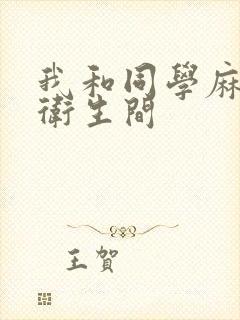 我和同學麻
衛生間
王賀